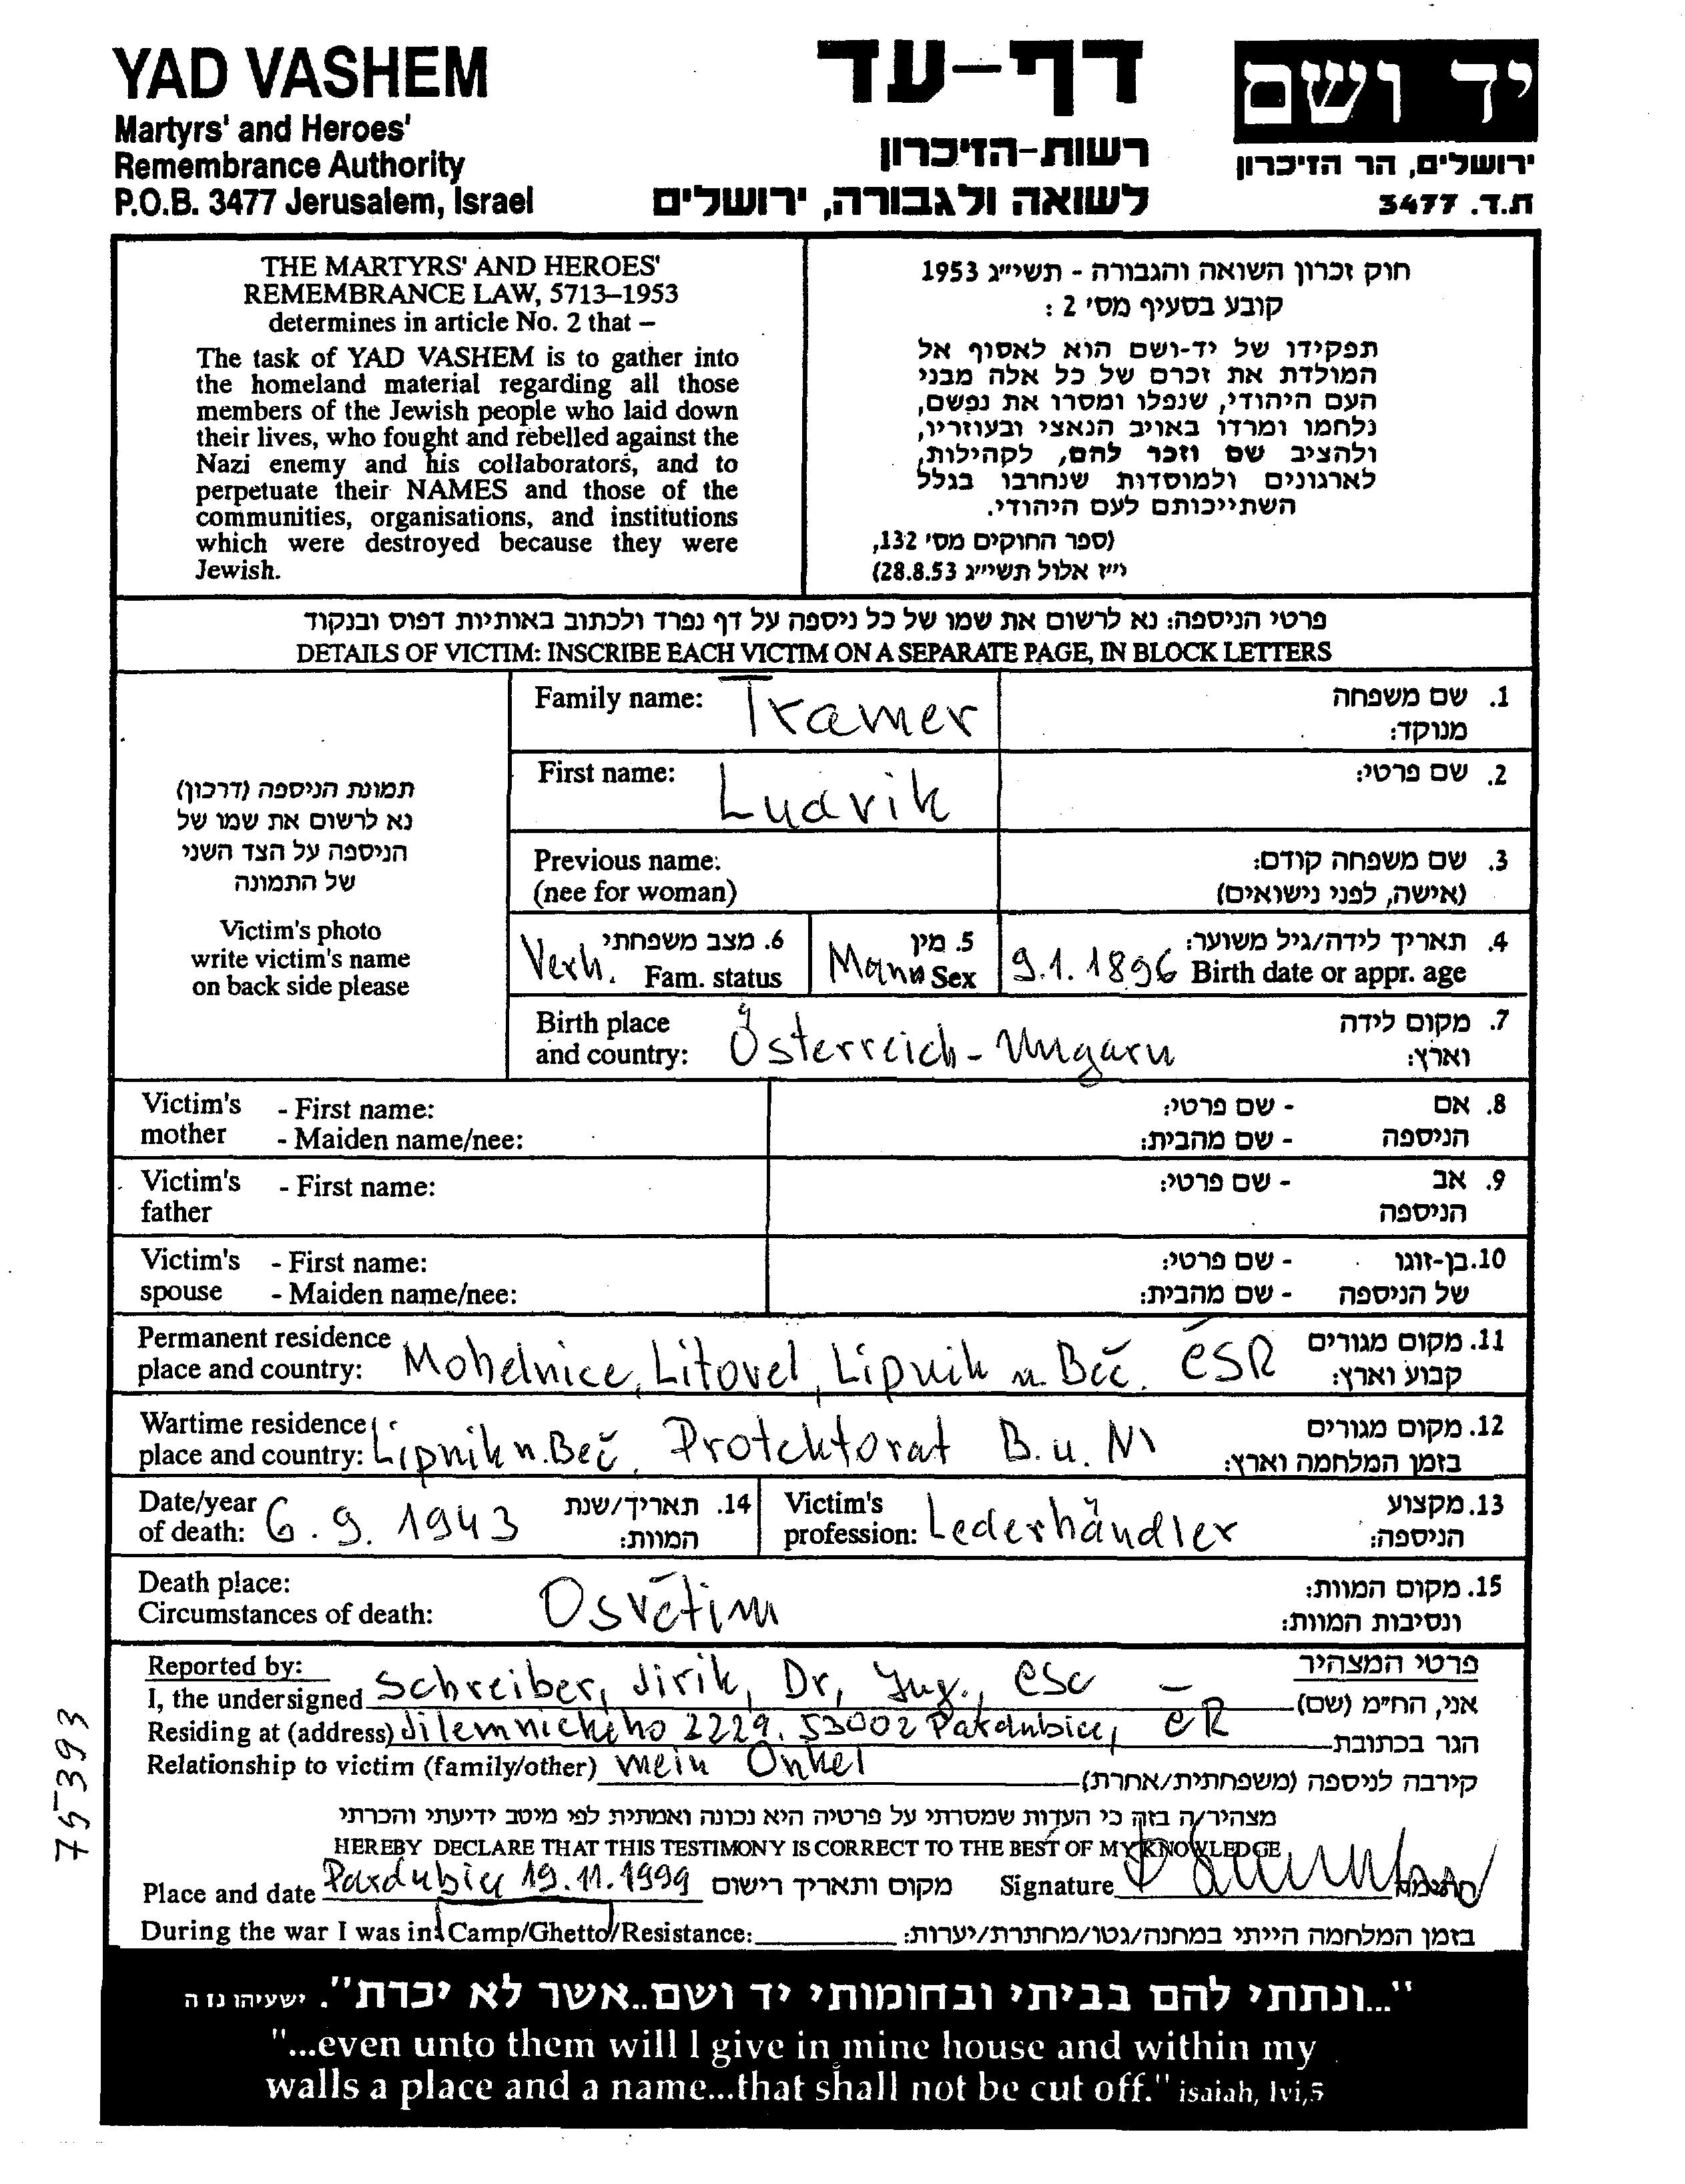 YAD VASHEM
Martyrs' and Heroes'
Remembrance Authority
P.O.B. 3477 Jerusalem, Israel
דף-עד
רשות-הזיכרון
לשואה ולגבורה, ירושלים
יד ושם
ירושלים, הר הזיכרון
ת.ד. 3477
THE MARTYRS' AND HEROES'
REMEMBRANCE LAW, 5713–1953
determines in article No. 2 that –
The task of YAD VASHEM is to gather into
the homeland material regarding all those
members of the Jewish people who laid down
their lives, who fought and rebelled against the
Nazi enemy and his collaborators, and to
perpetuate their NAMES and those of the
communities, organisations, and institutions
which were destroyed because they were
Jewish.
חוק זכרון השואה והגבורה - תשי״ג 1953
קובע בסעיף מס׳ 2 :
תפקידו של יד-ושם הוא לאסוף אל
המולדת את זכרם של כל אלה מבני
העם היהודי, שנפלו ומסרו את נפשם,
נלחמו ומרדו באויב הנאצי ובעוזריו,
ולהציב שם וזכר להם, לקהילות,
לארגונים ולמוסדות שנחרבו בגלל
השתייכותם לעם היהודי.
(ספר החוקים מס׳ 132,
י״ז אלול תשי״ג 28.8.53)
פרטי הניספה: נא לרשום את שמו של כל ניספה על דף נפרד ולכתוב באותיות דפוס ובנקוד
DETAILS OF VICTIM: INSCRIBE EACH VICTIM ON A SEPARATE PAGE, IN BLOCK LETTERS
תמונת הניספה (דרכון)
נא לרשום את שמו של
הניספה על הצד השני
של התמונה
Victim's photo
write victim's name
on back side please
Family name: Tramer 1. שם משפחה
מנוקד:
First name: Ludvik 2. שם פרטי:
Previous name: 3. שם משפחה קודם:
(nee for woman) (אישה, לפני נישואים)
Verh. 6. מצב משפחתי
Fam. status
Mann 5. מין
Sex
9.1.1896 4. תאריך לידה/גיל משוער:
Birth date or appr. age
Birth place 7. מקום לידה
and country: Österreich-Ungarn וארץ:
Victim's - First name: - שם פרטי: 8. אם
mother - Maiden name/nee: - שם מהבית: הניספה
Victim's - First name: - שם פרטי: 9. אב
father הניספה
Victim's - First name: - שם פרטי: 10. בן-זוגו
spouse - Maiden name/nee: - שם מהבית: של הניספה
Permanent residence 11. מקום מגורים
place and country: Mohelnice, Litovel, Lipník n. Beč. ČSR קבוע וארץ:
Wartime residence 12. מקום מגורים
place and country: Lipník n. Beč, Protektorat B. u. M בזמן המלחמה וארץ:
Date/year 14. תאריך/שנת
of death: 6. 9. 1943 המוות:
Victim's 13. מקצוע
profession: Lederhändler הניספה:
Death place: 15. מקום המוות:
Circumstances of death: Osvětim ונסיבות המוות:
Reported by: פרטי המצהיר
I, the undersigned Schreiber, Jirik, Dr, Ing., CSc אני, הח״מ (שם)
Residing at (address) Jilemnického 2229. 53002 Pardubice, ČR הגר בכתובת
Relationship to victim (family/other) mein Onkel קירבה לניספה (משפחתית/אחרת)
מצהיר/ה בזה כי העדות שמסרתי על פרטיה היא נכונה ואמתית לפי מיטב ידיעתי והכרתי
HEREBY DECLARE THAT THIS TESTIMONY IS CORRECT TO THE BEST OF MY KNOWLEDGE
Place and date Pardubice 19.11.1999 מקום ותאריך רישום Signature חתימה
During the war I was in: Camp/Ghetto/Resistance: בזמן המלחמה הייתי במחנה/גטו/מחתרת/יערות:
"...ונתתי להם בביתי ובחומותי יד ושם..אשר לא יכרת". ישעיהו נו ה
"...even unto them will I give in mine house and within my
walls a place and a name...that shall not be cut off." isaiah, lvi,5
75393